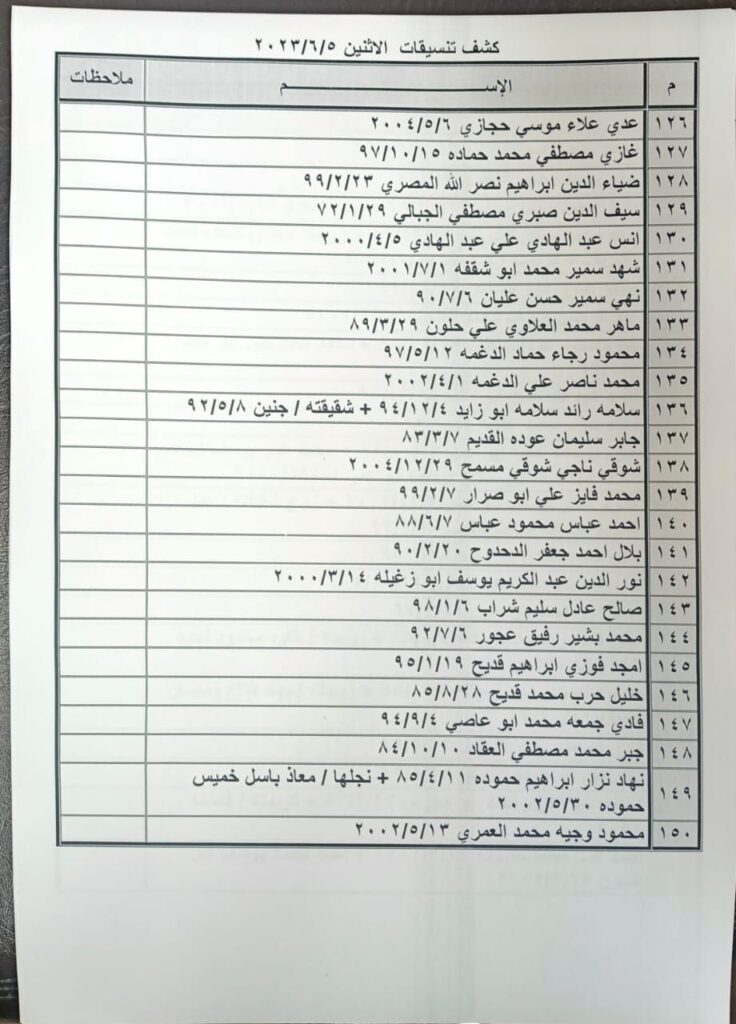 كشف تنسيقات الاثنين ٢٠٢٣/٦/٥
م الإســـــم ملاحظات
١٢٦ عدي علاء موسي حجازي ٢٠٠٤/٥/٦
١٢٧ غازي مصطفي محمد حماده ٩٧/١٠/١٥
١٢٨ ضياء الدين ابراهيم نصر الله المصري ٩٩/٢/٢٣
١٢٩ سيف الدين صبري مصطفي الجبالي ٧٢/١/٢٩
١٣٠ انس عبد الهادي علي عبد الهادي ٢٠٠٠/٤/٥
١٣١ شهد سمير محمد ابو شقفه ٢٠٠١/٧/١
١٣٢ نهي سمير حسن عليان ٩٠/٧/٦
١٣٣ ماهر محمد العلاوي علي حلون ٨٩/٣/٢٩
١٣٤ محمود رجاء حماد الدغمه ٩٧/٥/١٢
١٣٥ محمد ناصر علي الدغمه ٢٠٠٢/٤/١
١٣٦ سلامه رائد سلامه ابو زايد ٩٤/١٢/٤ + شقيقته / جنين ٩٢/٥/٨
١٣٧ جابر سليمان عوده القديم ٨٣/٣/٧
١٣٨ شوقي ناجي شوقي مسمح ٢٠٠٤/١٢/٢٩
١٣٩ محمد فايز علي ابو صرار ٩٩/٢/٧
١٤٠ احمد عباس محمود عباس ٨٨/٦/٧
١٤١ بلال احمد جعفر الدحدوح ٩٠/٢/٢٠
١٤٢ نور الدين عبد الكريم يوسف ابو زغيله ٢٠٠٠/٣/١٤
١٤٣ صالح عادل سليم شراب ٩٨/١/٦
١٤٤ محمد بشير رفيق عجور ٩٢/٧/٦
١٤٥ امجد فوزي ابراهيم قديح ٩٥/١/١٩
١٤٦ خليل حرب محمد قديح ٨٥/٨/٢٨
١٤٧ فادي جمعه محمد ابو عاصي ٩٤/٩/٤
١٤٨ جبر محمد مصطفي العقاد ٨٤/١٠/١٠
١٤٩ نهاد نزار ابراهيم حموده ٨٥/٤/١١ + نجلها / معاذ باسل خميس
حموده ٢٠٠٢/٥/٣٠
١٥٠ محمود وجيه محمد العمري ٢٠٠٢/٥/١٣